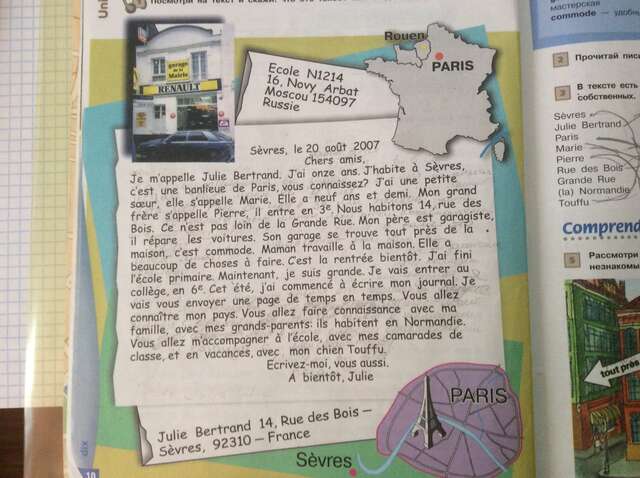 Посмотри на текст и скажи,
Uni
garage
de la
Mairie
RENAULT
Rouen
PARIS
Ecole N1214
16, Novy Arbat
Moscou 154097
Russie
Sèvres, le 20 août 2007
Chers amis,
Je m'appelle Julie Bertrand. J'ai onze ans. J'habite à Sèvres,
c'est une banlieue de Paris, vous connaissez? J'ai une petite
sœur, elle s'appelle Marie. Elle a neuf ans et demi. Mon grand
frère s'appelle Pierre, il entre en 3e. Nous habitons 14, rue des
Bois. Ce n'est pas loin de la Grande Rue. Mon père est garagiste,
il répare les voitures. Son garage se trouve tout près de la
maison, c'est commode. Maman travaille à la maison. Elle a
beaucoup de choses à faire. C'est la rentrée bientôt. J'ai fini
l'école primaire. Maintenant, je suis grande. Je vais entrer au
collège, en 6e. Cet été, j'ai commencé à écrire mon journal. Je
vais vous envoyer une page de temps en temps. Vous allez
connaître mon pays. Vous allez faire connaissance avec ma
famille, avec mes grands-parents: ils habitent en Normandie.
Vous allez m'accompagner à l'école, avec mes camarades de
classe, et en vacances, avec mon chien Touffu.
Ecrivez-moi, vous aussi.
A bientôt, Julie
Julie Bertrand 14, Rue des Bois –
Sèvres, 92310 – France
PARIS
Sèvres
dix
10
мастерская
commode — удобн
2 Прочитай пис
3 В тексте есть
собственных.
Sèvres
Julie Bertrand
Paris
Marie
Pierre
Rue des Bois
Grande Rue
(la) Normandie
Touffu
Comprend
5 Рассмотри
незнаком
tout près